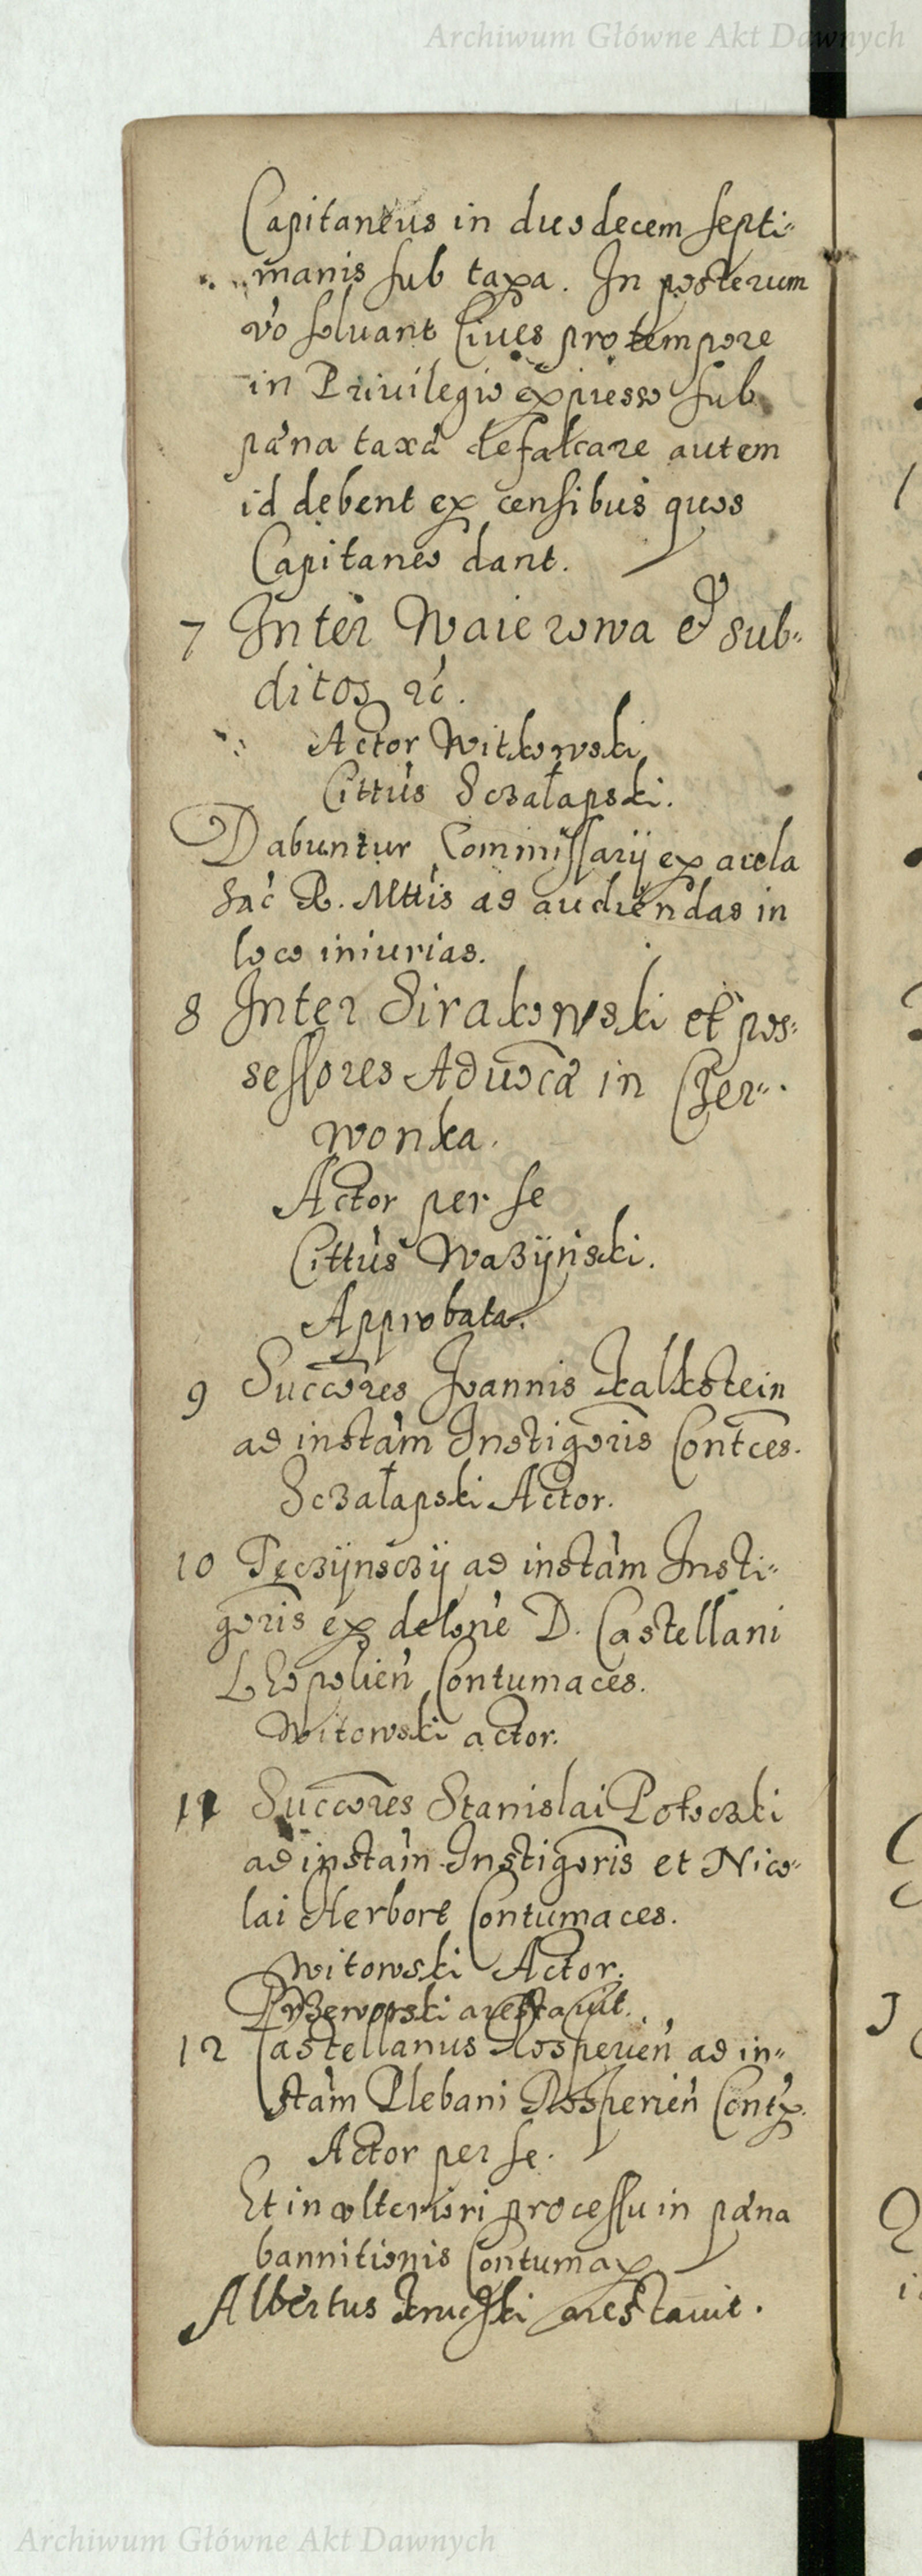 Archiwum Główne Akt Dawnych
Capitaneus in duodecem septi-
manis sub taxa. In posterum
vo soluant Ciues pro tempore
in Priuilegio expresso sub
pæna taxæ defalcare autem
id debent ex censibus quos
Capitaneo dant.
7 Inter Waierowa et sub-
ditos etc.
Actor Witkowski
Cittus Sczałapski.
Dabuntur Commissarij ex aula
Sac R. Mttis ad audiendas in
loco iniurias.
8 Inter Sirakowski et pos-
sessores Aduocæ in Czer-
wonka.
Actor per se
Cittus Wazÿnski.
Approbata.
9 Succores Ioannis Kalkstein
ad instam Instigoris Contces.
Sczałapski Actor.
10 Tęczÿnsczÿ ad instam Insti-
goris ex delone D. Castellani
Leopolien Contumaces.
Witowski actor.
11 Succores Stanislai Potoczki
ad instam Instigoris et Nico-
lai Herbort Contumaces.
Witowski Actor.
Przeworski arestauit.
12 Castellanus Rosperien ad in-
stam Plebani Rosperien Contx.
Actor per se.
Et in vlteriori processu in pæna
bannitionis Contumax
Albertus arestauit.
Archiwum Główne Akt Dawnych